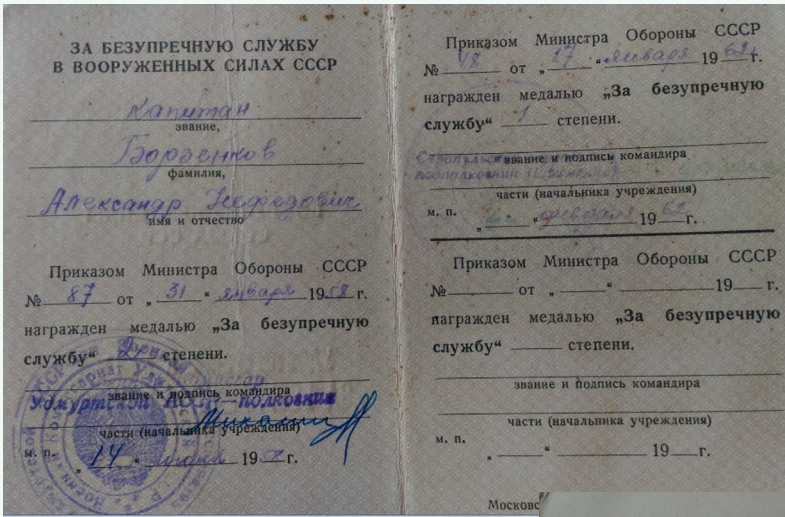 ЗА БЕЗУПРЕЧНУЮ СЛУЖБУ
В ВООРУЖЕННЫХ СИЛАХ СССР
Капитан
звание,
Борзенков
фамилия,
Александр Нефедович
имя и отчество
Приказом Министра Обороны СССР
№ 87 от „ 31 “ января 1958 г.
награжден медалью „За безупречную
службу“ 2 степени.
звание и подпись командира
Удмуртской АССР—полковник
части (начальника учреждения)
м. п.
„ 14 “ 19 г.
Приказом Министра Обороны СССР
№ 48 от „ 17 “ января 1962 г.
награжден медалью „За безупречную
службу“ 1 степени.
звание и подпись командира
подполковник
части (начальника учреждения)
м. п.
„ “ февраля 19 62 г.
Приказом Министра Обороны СССР
№ от „ “ 19 г.
награжден медалью „За безупречную
службу“ степени.
звание и подпись командира
части (начальника учреждения)
м. п.
„ “ 19 г.
Московс